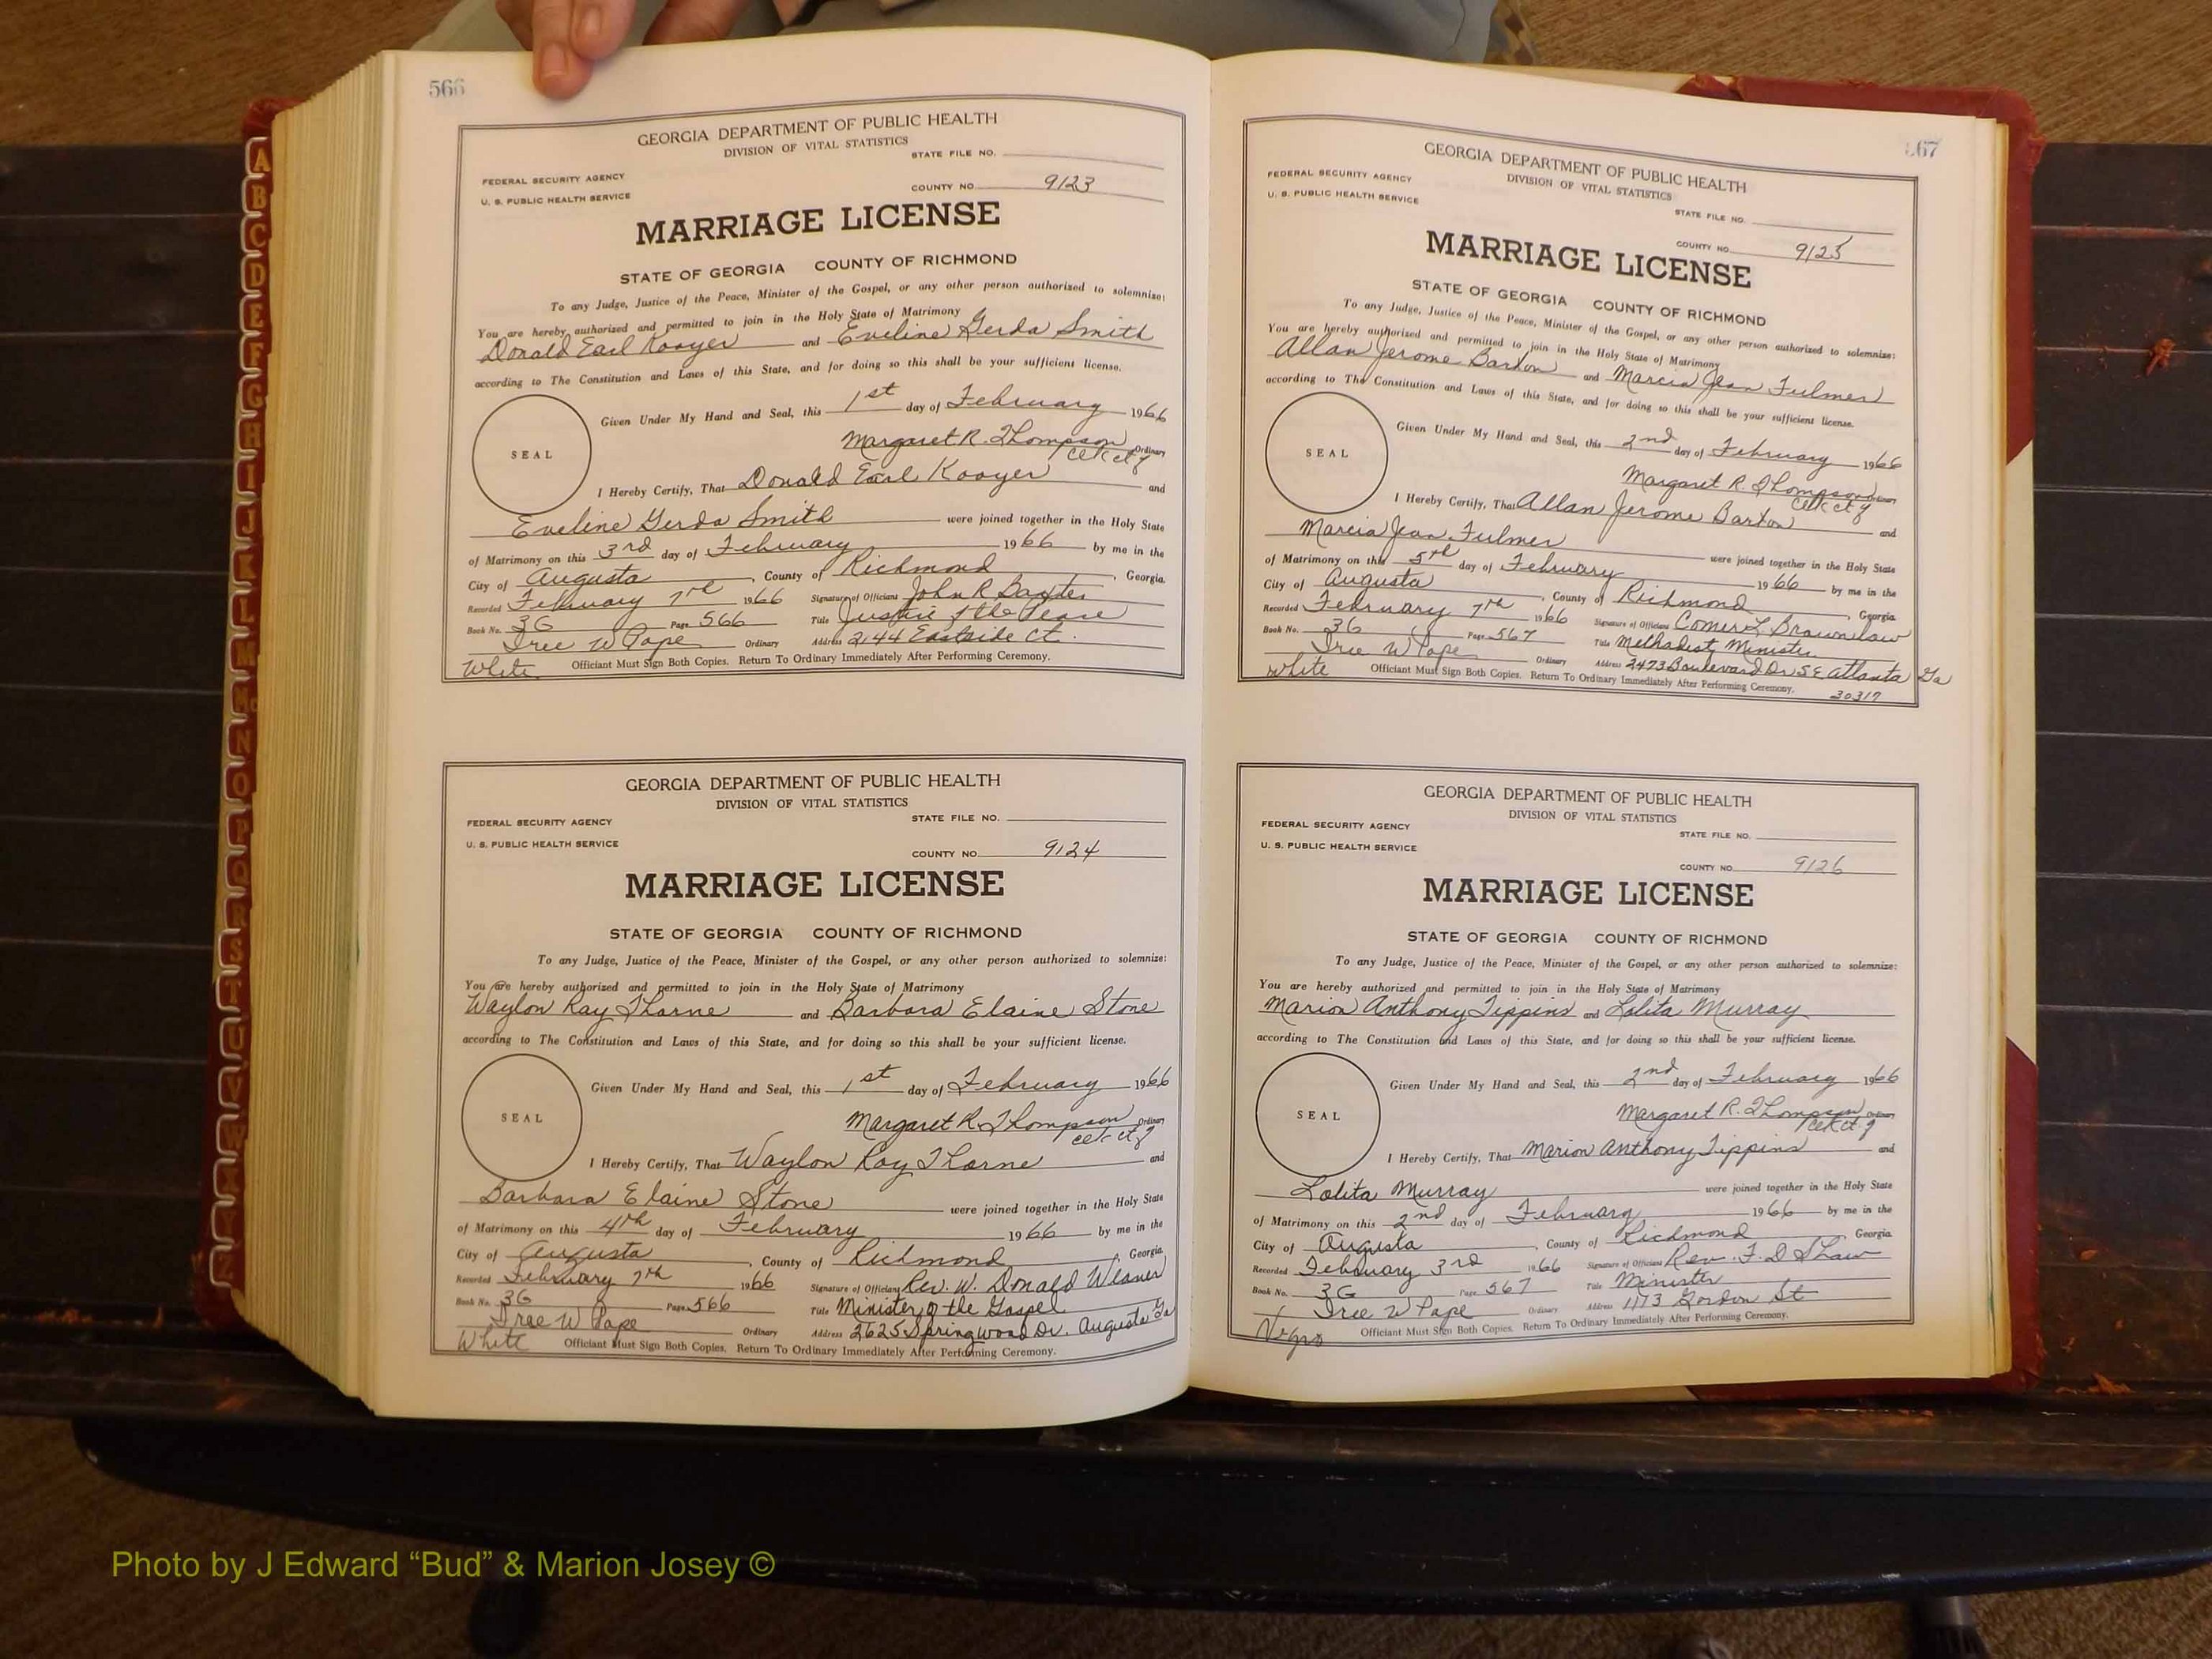 566
GEORGIA DEPARTMENT OF PUBLIC HEALTH
DIVISION OF VITAL STATISTICS
STATE FILE NO.
FEDERAL SECURITY AGENCY
U. S. PUBLIC HEALTH SERVICE
COUNTY NO. 9123
MARRIAGE LICENSE
STATE OF GEORGIA COUNTY OF RICHMOND
To any Judge, Justice of the Peace, Minister of the Gospel, or any other person authorized to solemnize:
You are hereby authorized and permitted to join in the Holy State of Matrimony
Donald Earl Kooyer and Eveline Gerda Smith
according to The Constitution and Laws of this State, and for doing so this shall be your sufficient license.
Given Under My Hand and Seal, this 1st day of February 1966
SEAL
Margaret R. Thompson Ordinary
Clk ct
I Hereby Certify, That Donald Earl Kooyer and
Eveline Gerda Smith were joined together in the Holy State
of Matrimony on this 3rd day of February 1966 by me in the
City of Augusta, County of Richmond, Georgia.
Recorded February 7th 1966 Signature of Officiant John R Baxter
Book No. 3G Page 566 Title Justice of the Peace
Iree W Pope Ordinary Address 2144 Eastside Ct.
White Officiant Must Sign Both Copies. Return To Ordinary Immediately After Performing Ceremony.
GEORGIA DEPARTMENT OF PUBLIC HEALTH
DIVISION OF VITAL STATISTICS
STATE FILE NO.
FEDERAL SECURITY AGENCY
U. S. PUBLIC HEALTH SERVICE
COUNTY NO. 9124
MARRIAGE LICENSE
STATE OF GEORGIA COUNTY OF RICHMOND
To any Judge, Justice of the Peace, Minister of the Gospel, or any other person authorized to solemnize:
You are hereby authorized and permitted to join in the Holy State of Matrimony
Waylon Ray Thorne and Barbara Elaine Stone
according to The Constitution and Laws of this State, and for doing so this shall be your sufficient license.
Given Under My Hand and Seal, this 1st day of February 1966
SEAL
Margaret R. Thompson Ordinary
Clk ct
I Hereby Certify, That Waylon Ray Thorne and
Barbara Elaine Stone were joined together in the Holy State
of Matrimony on this 4th day of February 1966 by me in the
City of Augusta, County of Richmond, Georgia
Recorded February 7th 1966 Signature of Officiant Rev. W. Donald Weaver
Book No. 3G Page 566 Title Minister of the Gospel
Iree W Pope Ordinary Address 2625 Springwood Dr. Augusta Ga
White Officiant Must Sign Both Copies. Return To Ordinary Immediately After Performing Ceremony.
67
GEORGIA DEPARTMENT OF PUBLIC HEALTH
DIVISION OF VITAL STATISTICS
FEDERAL SECURITY AGENCY
U. S. PUBLIC HEALTH SERVICE
STATE FILE NO.
COUNTY NO. 9125
MARRIAGE LICENSE
STATE OF GEORGIA COUNTY OF RICHMOND
To any Judge, Justice of the Peace, Minister of the Gospel, or any other person authorized to solemnize:
You are hereby authorized and permitted to join in the Holy State of Matrimony
Allan Jerome Barton and Marcia Jean Fulmer
according to The Constitution and Laws of this State, and for doing so this shall be your sufficient license.
Given Under My Hand and Seal, this 2nd day of February 1966
SEAL
Margaret R. Thompson Ordinary
Clk ct
I Hereby Certify, That Allan Jerome Barton and
Marcia Jean Fulmer were joined together in the Holy State
of Matrimony on this 5th day of February 1966 by me in the
City of Augusta, County of Richmond, Georgia
Recorded February 7th 1966 Signature of Officiant Comer L Brownlow
Book No. 3G Page 567 Title Methodist Minister
Iree W Pope Ordinary Address 2473 Boulevard Dr SE Atlanta Ga
White Officiant Must Sign Both Copies. Return To Ordinary Immediately After Performing Ceremony. 30317
GEORGIA DEPARTMENT OF PUBLIC HEALTH
DIVISION OF VITAL STATISTICS
FEDERAL SECURITY AGENCY
STATE FILE NO.
U. S. PUBLIC HEALTH SERVICE
COUNTY NO. 9126
MARRIAGE LICENSE
STATE OF GEORGIA COUNTY OF RICHMOND
To any Judge, Justice of the Peace, Minister of the Gospel, or any other person authorized to solemnize:
You are hereby authorized and permitted to join in the Holy State of Matrimony
Marion Anthony Tippins and Lolita Murray
according to The Constitution and Laws of this State, and for doing so this shall be your sufficient license.
Given Under My Hand and Seal, this 2nd day of February 1966
SEAL
Margaret R. Thompson Ordinary
Clk ct
I Hereby Certify, That Marion Anthony Tippins and
Lolita Murray were joined together in the Holy State
of Matrimony on this 2nd day of February 1966 by me in the
City of Augusta, County of Richmond Georgia
Recorded February 3rd 1966 Signature of Officiant Rev. F. D Shaw
Book No. 3G Page 567 Title Minister
Iree W Pope Ordinary Address 1173 Gordon St
Negro Officiant Must Sign Both Copies. Return To Ordinary Immediately After Performing Ceremony.
A
B
C
D
E
F
G
H
I
J
K
L
M
Mc
N
O
P
Q
R
S
T
U
V
W
X
Y
Z
Photo by J Edward “Bud” & Marion Josey ©